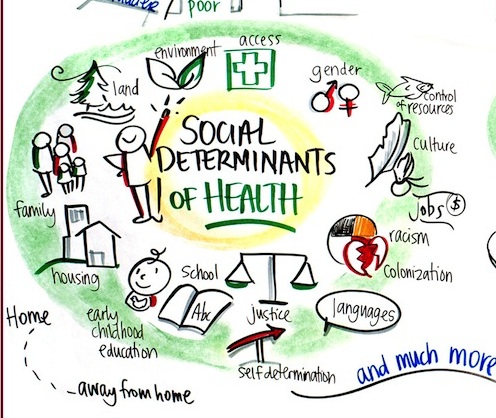 poor
environment
access
land
gender
control
of resources
SOCIAL
DETERMINANTS
OF HEALTH
culture
jobs $
family
racism
colonization
housing
school
Abc
justice
languages
early
childhood
education
self determination
Home
away from home
and much more